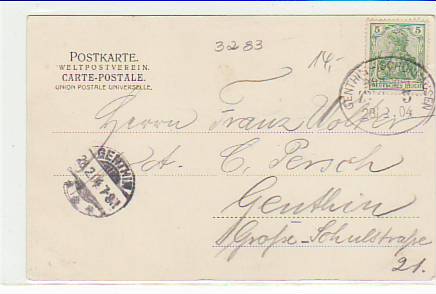 POSTKARTE.
WELTPOSTVEREIN.
CARTE-POSTALE.
UNION POSTALE UNIVERSELLE.
3283
14,-
5 5
DEUTSCHES REICH
GENTHIN SCHÖNHAUSEN
04
Herrn Franz
C. Persch
Genthin
Große-Schulstraße
21.
GENTHIN